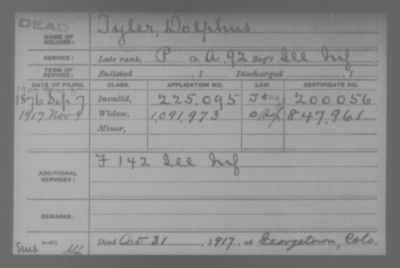 DEAD
NAME OF SOLDIER: Tyler, Dolphus
SERVICE: Late rank, P Co. A, 92 Reg't Ill Inf
TERM OF SERVICE: Enlisted , 1 Discharged , 1
DATE OF FILING. CLASS. APPLICATION NO. LAW. CERTIFICATE NO.
1876 Sep 7 Invalid, 225,095 200056
1917 Nov 9 Widow, 1,091,973 847,961
Minor,
ADDITIONAL SERVICES: F 142 Ill Inf
REMARKS:
Died Oct 31, 1917, at Georgetown, Colo.